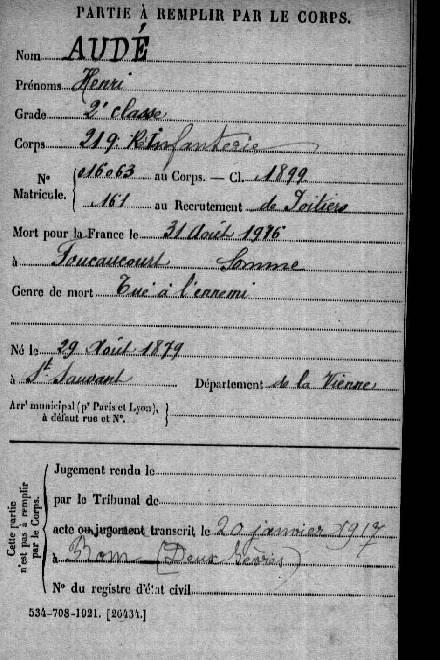 PARTIE À REMPLIR PAR LE CORPS.
Nom AUDÉ
Prénoms Henri
Grade 2e classe
Corps 219 R Infanterie
No Matricule. 016063 au Corps. — Cl. 1899
161 au Recrutement de Poitiers
Mort pour la France le 31 Août 1916
à Foucaucourt Somme
Genre de mort Tué à l'ennemi
Né le 29 Août 1879
à St Sauvant Département de la Vienne
Arrt municipal (pr Paris et Lyon), à défaut rue et No.
Cette partie n'est pas à remplir par le Corps.
Jugement rendu le
par le Tribunal de
acte ou jugement transcrit le 20 janvier 1917
à Rom (Deux Sèvres)
No du registre d'état civil
534-708-1921. [26434.]